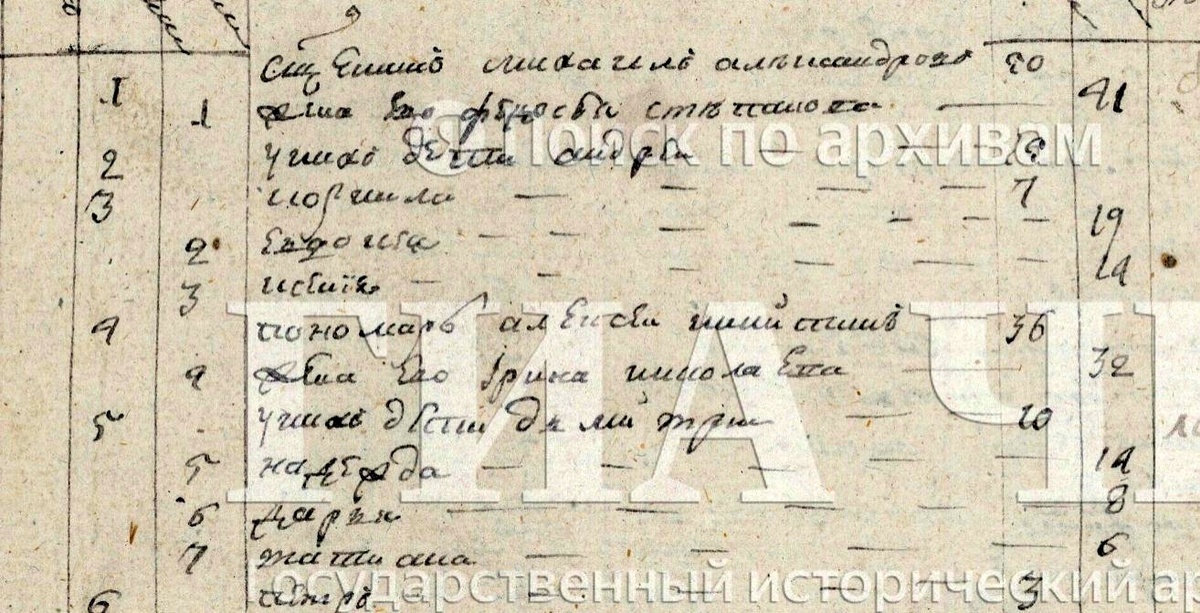 1 Сщенникъ михаилъ александровъ 50
1 жена Его феѡдосья стѣпанова — 41
2 У нихъ дети андрей — —
3 — — — — 7
2 Евдокия — — — — — 19
3 — — — — — 14
4 пономарь алексеи никитинъ — 36
4 жена Его Ірина николаева — 32
5 У нихъ дѣти димитрий — 10
5 надежда — — — — 14
6 дарья — — — — — 8
7 татиана — — — — 6
6 петръ — — — — — 3
Поиск по архивам
ГИА Ч
Государственный исторический ар